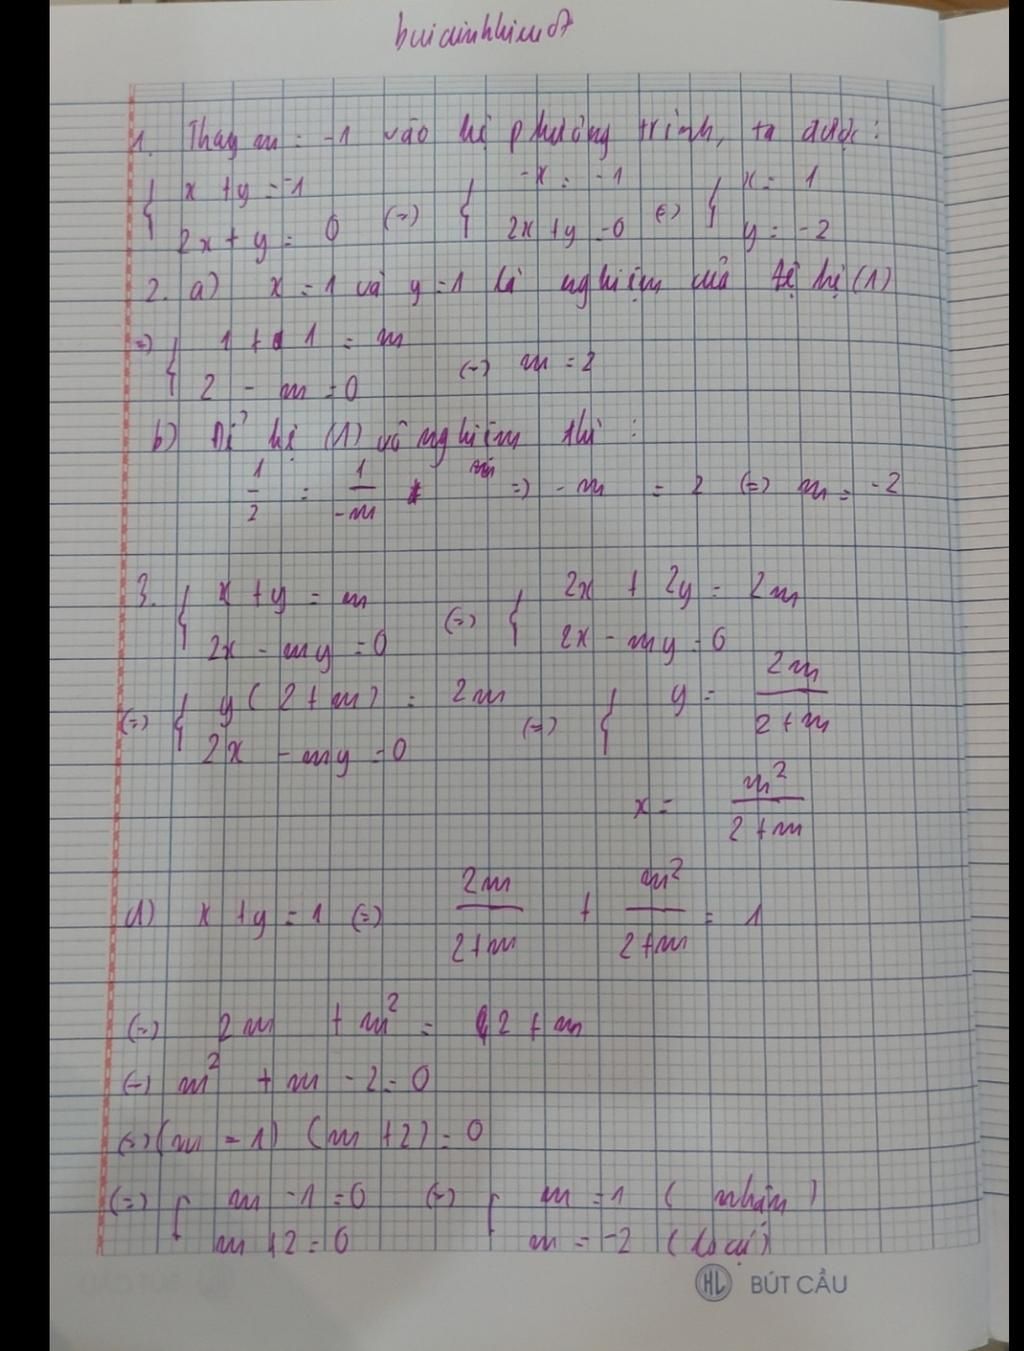 buidinhhieu07
1. Thay m = -1 vào hệ phương trình, ta được:
{ x + y = -1 (=) { -x = -1 (=) { x = 1
2x + y = 0 2x + y = 0 y = -2
2. a) x = 1 và y = 1 là nghiệm của hệ (1)
=) { 1 + 1 = m (=) m = 2
2 - m = 0
b) Để hệ (1) vô nghiệm thì :
1/2 = 1/-m =) -m = 2 (=) m = -2
3. { x + y = m (=) { 2x + 2y = 2m
2x - my = 0 2x - my = 0
(=) { y(2 + m) = 2m (=) { y = 2m/2+m
2x - my = 0
x = m²/2+m
d) x + y = 1 (=) 2m/2+m + m²/2+m = 1
(=) 2m + m² = 2 + m
(=) m² + m - 2 = 0
(=) (m - 1) (m + 2) = 0
(=) [ m - 1 = 0 (=) [ m = 1 ( nhận )
m + 2 = 0 m = -2 (loại)
HL BÚT CẦU